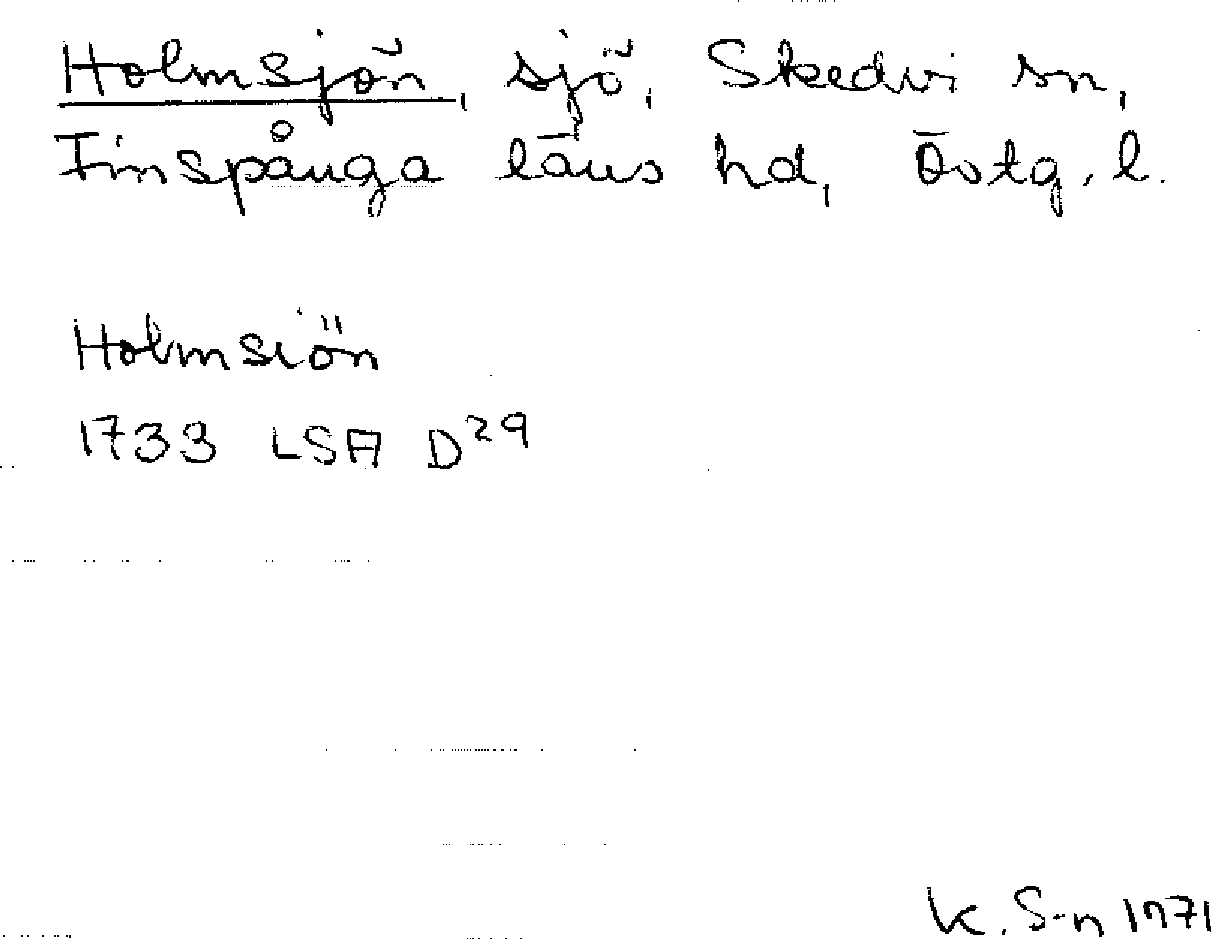 Holmsjön, sjö, Skedvi sn,
Finspånga läns hd, Östg. l.
Holmsiön
1733 LSA D29
K. S-n 1971